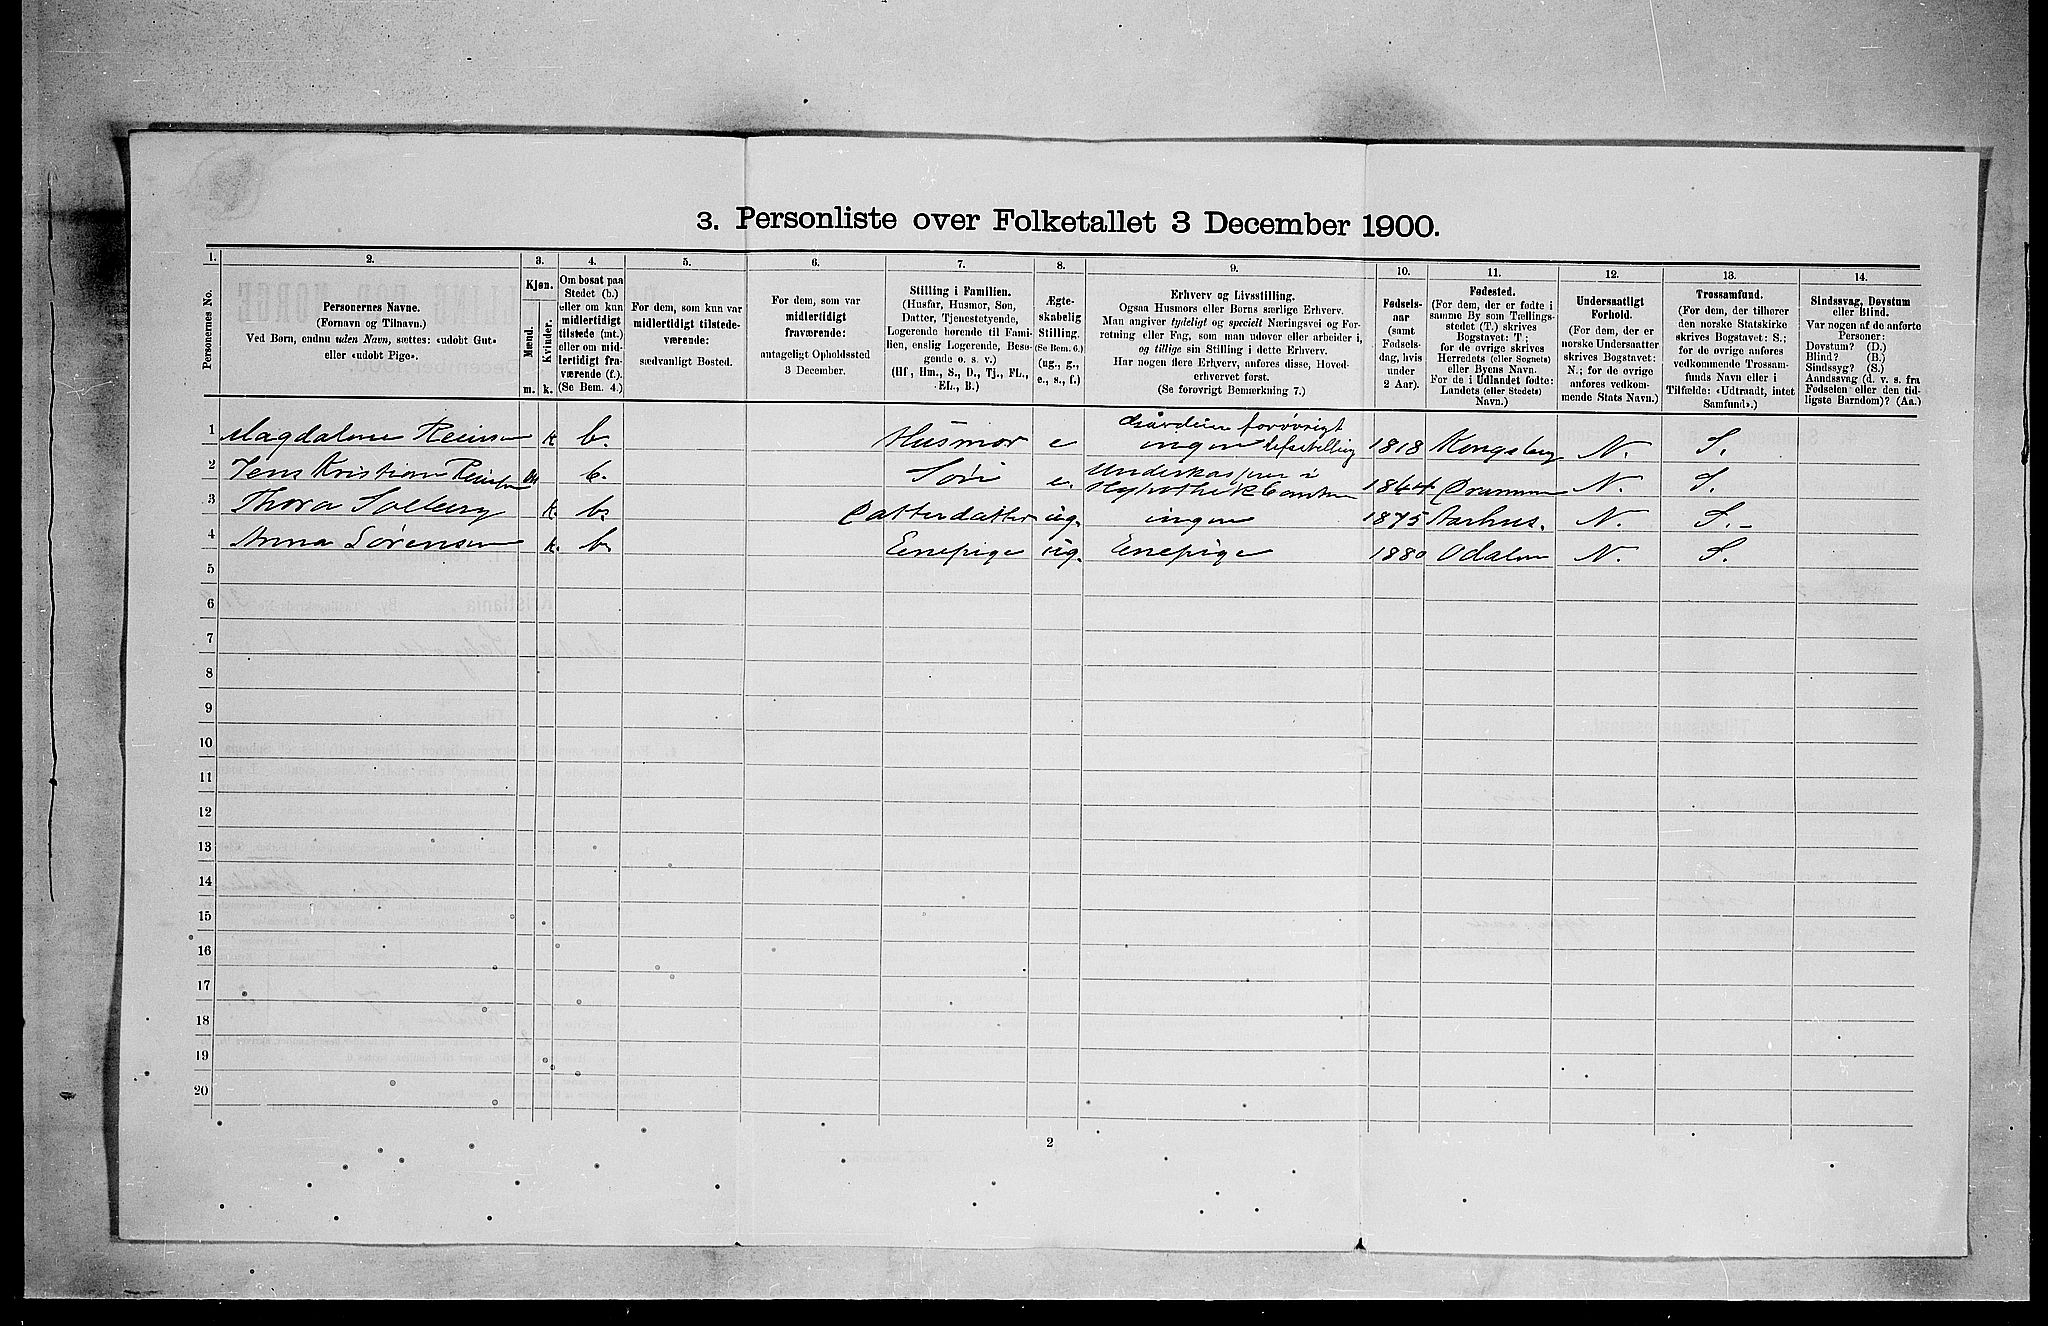 3. Personliste over Folketallet 3 December 1900.
1. 2. 3. 4. 5. 6. 7. 8. 9. 10. 11. 12. 13. 14.
Personernes No.
Personernes Navne.
(Fornavn og Tilnavn.)
Ved Børn, endnu uden Navn, sættes: «udøbt Gut»
eller «udøbt Pige».
Kjøn.
Mænd.
Kvinder.
m. k.
Om bosat paa
Stedet (b.)
eller om kun
midlertidigt
tilstede (mt.)
eller om mid-
lertidigt fra-
værende (f.).
(Se Bem. 4.)
For dem, som kun var
midlertidigt tilstede-
værende:
sædvanligt Bosted.
For dem, som var
midlertidigt
fraværende:
antageligt Opholdssted
3 December.
Stilling i Familien.
(Husfar, Husmor, Søn,
Datter, Tjenestetyende,
Logerende hørende til Fami-
lien, enslig Logerende, Besø-
gende o. s. v.)
(Hf, Hm., S., D., Tj., FL.,
EL., B.)
Ægte-
skabelig
Stilling.
(Se Bem. 6.)
(ug., g.,
e., s., f.)
Erhverv og Livsstilling.
Ogsaa Husmors eller Børns særlige Erhverv.
Man angiver tydeligt og specielt Næringsvei og For-
retning eller Fag, som man udøver eller arbeider i,
og tillige sin Stilling i dette Erhverv.
Har nogen flere Erhverv, anføres disse, Hoved-
erhvervet først.
(Se forøvrigt Bemerkning 7.)
Fødsels-
aar
(samt
Fødsels-
dag, hvis
under
2 Aar).
Fødested.
(For dem, der er fødte i
samme By som Tællings-
stedet (T.) skrives
Bogstavet: T.;
for de øvrige skrives
Herredets (eller Sognets)
eller Byens Navn.
For de i Udlandet fødte:
Landets (eller Stedets)
Navn.)
Undersaatligt
Forhold.
(For dem, der er
norske Undersaatter
skrives Bogstavet:
N.; for de øvrige
anføres vedkom-
mende Stats Navn.)
Trossamfund.
(For dem, der tilhører
den norske Statskirke
skrives Bogstavet: S.;
for de øvrige anføres
vedkommende Trossam-
funds Navn eller i
Tilfælde: «Udtraadt, intet
Samfund».)
Sindssvag, Døvstum
eller Blind.
Var nogen af de anførte
Personer:
Døvstum? (D.)
Blind? (B.)
Sindssyg? (S.)
Aandssvag (d. v. s. fra
Fødselen eller den tid-
ligste Barndom)? (Aa.)
1 Magdalene k b. Husmor e Gårdeier forøvrigt
ingen 1818 Kongsberg N. S.
2 Jens Kristian m b. Søn e. Underkasserer i
1864 Drammen N. S.
3 Thora Solberg k. b. Datterdatter ug. ingen 1875 Aarhus. N. S.-
4 Anna Sørensen k. b. Enepige ug. Enepige 1880 Odalen N. S.
5
6
7
8
9
10
11
12
13
14
15
16
17
18
19
20
2